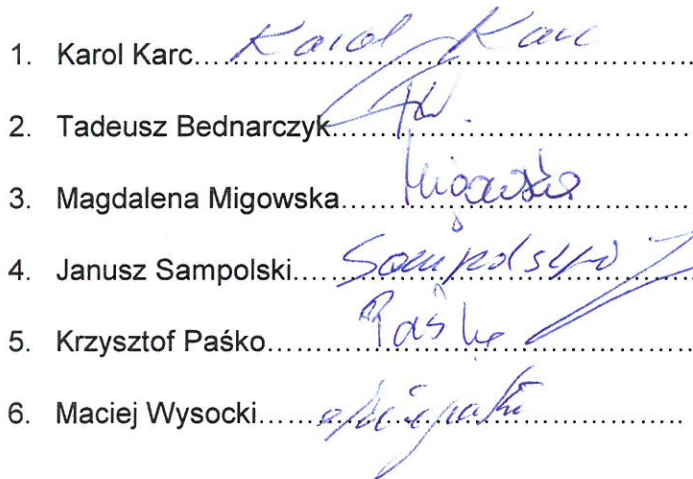 1. Karol Karc.... Karol Karc
2. Tadeusz Bednarczyk....
3. Magdalena Migowska.... Migowska
4. Janusz Sampolski.... Sampolski
5. Krzysztof Paśko.... Paśko
6. Maciej Wysocki....